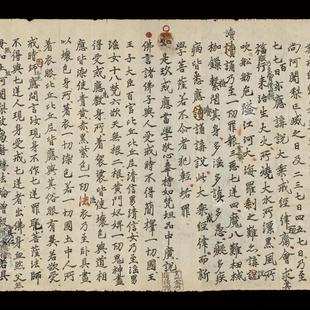 尚阿闍梨亡滅之日及二三七日四五七日乃至
七七日亦應講說大乘經律齋會求其
福行來治生大火所燒大水所漂黑風所
吹舩舫危隘江河大海羅剎之難亦講
讀誦講說乃至一切罪報三惡七逆四魔八難杻械
枷鎖繫縛其身多婬多瞋多愚癡多疾
病皆悉應讀誦講說此大乘經律而新
學菩薩若不介者犯輕垢罪
如是玖戒應當學敬心奉持如梵坦品中廣說
佛言諸佛子與人受戒時不得簡擇一切國王
王子大臣百官比丘比丘尼清信男清信女乃至婬男
婬女十八梵六欲天無根二根黃門奴婢一切鬼神盡
得受戒應教身所著袈裟皆使壞色與道相
應皆染使青黃赤黑紫色一切法衣乃至臥具盡
以壞色身所著衣一切染色若一切國土中人所
著衣服比丘皆應與其俗服有異若欲受
戒時應問言汝現身不作七逆罪耶菩薩法師
不得與七逆人現身受戒七逆者出佛身血煞父煞